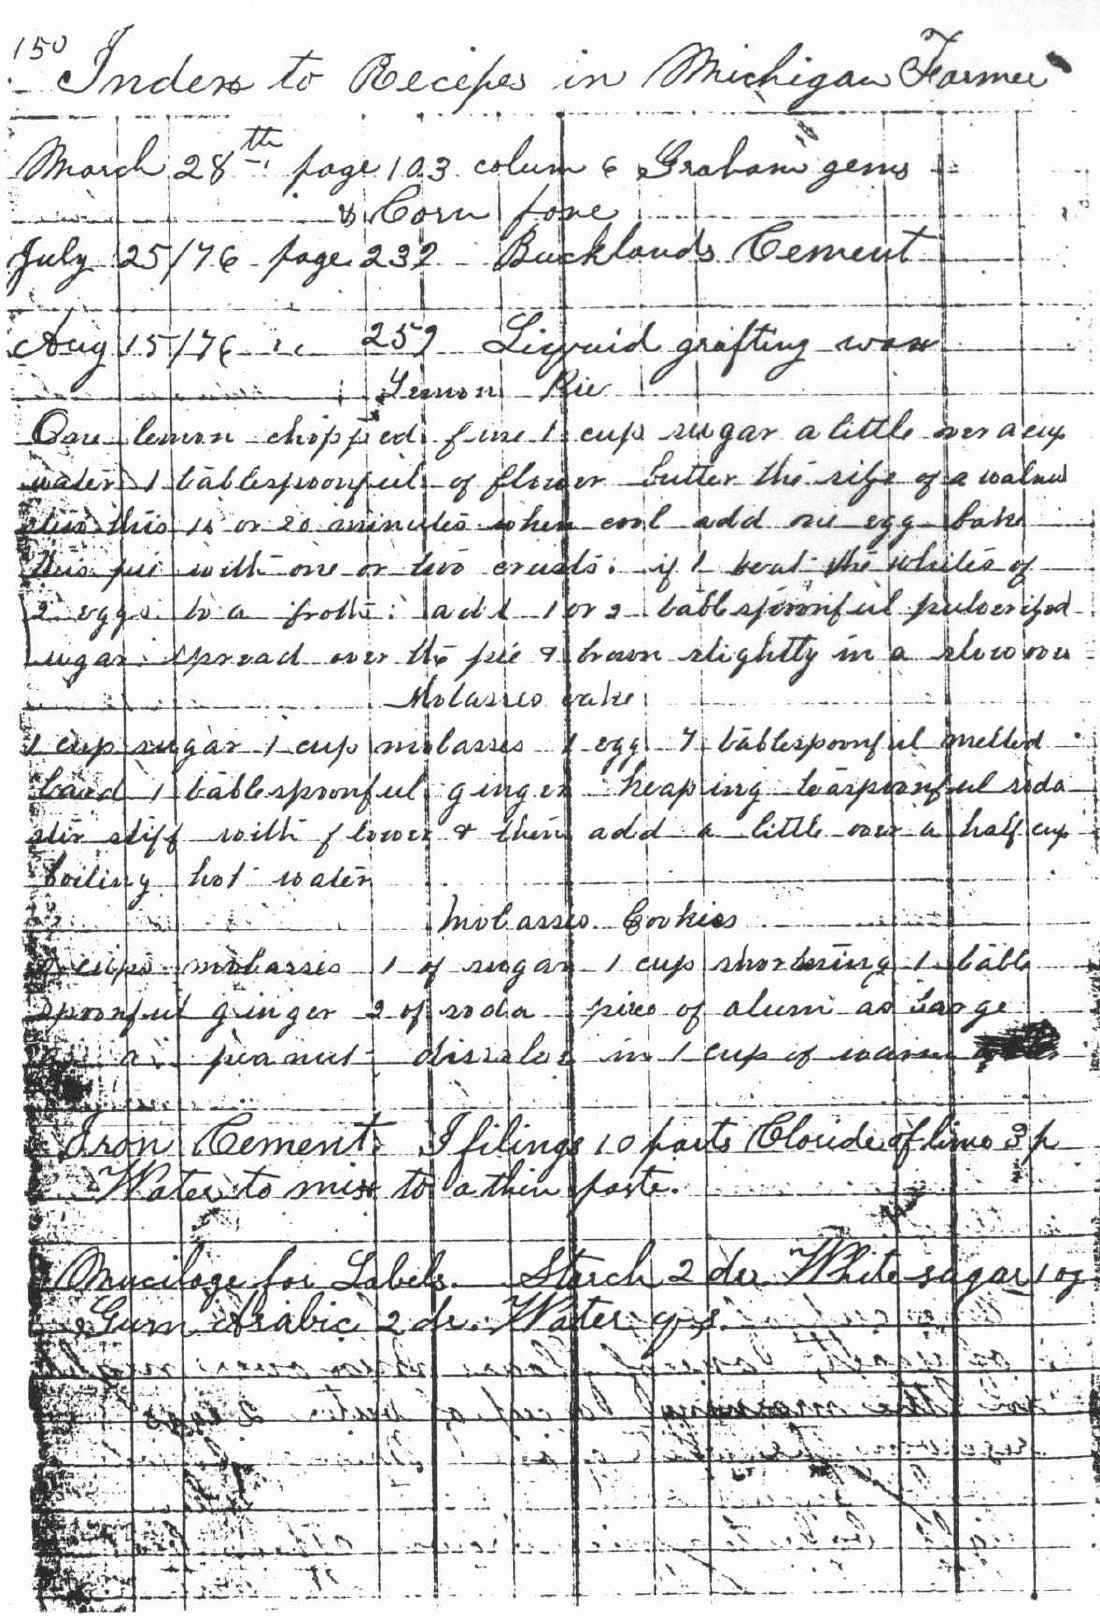 150
Index to Recipes in Michigan Farmer
March 28th page 103 colum 6 Graham gems
& Corn pone
July 25/76 page 232 Bucklands Cement
Aug 15/76 " 259 Liquid grafting wax
Lemon Pie
One lemon chopped fine 1 cup sugar a little over a cup
water 1 tablespoonful of flower butter the size of a walnut
stew this 15 or 20 minutes when cool add one egg bake
this pie with one or two crusts. if 1 beat the whites of
2 eggs to a froth. add 1 or 2 tablespoonful pulverized
sugar spread over the pie & brown slightly in a slow oven
Molasses cake
1 cup sugar 1 cup molasses 1 egg 7 tablespoonful melted
lard 1 tablespoonful ginger heaping teaspoonful soda
stir stiff with flower & then add a little over a half cup
boiling hot water
Molasses Cookies
2 cups molasses 1 of sugar 1 cup shortening 1 table
spoonful ginger 2 of soda piece of alum as large
as a peanut disolve in 1 cup of warm
Iron Cement. I filings 10 parts Cloride of lime 3 p
Water to mix to a thin paste.
Mucilage for Labels. Starch 2 dr. White sugar 1 oz
Gum Arabic 2 dr. Water q.s.